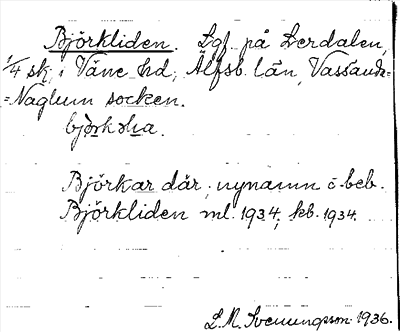 Björkliden. Lgf. på Lerdalen,
1/4 sk, i Väne hd, Älfsb. län, Vassända-
=Naglum socken.
Björkar där; nynamn o. beb.
Björkliden ml. 1934; kb. 1934.
L.M. Svenungsson 1936.